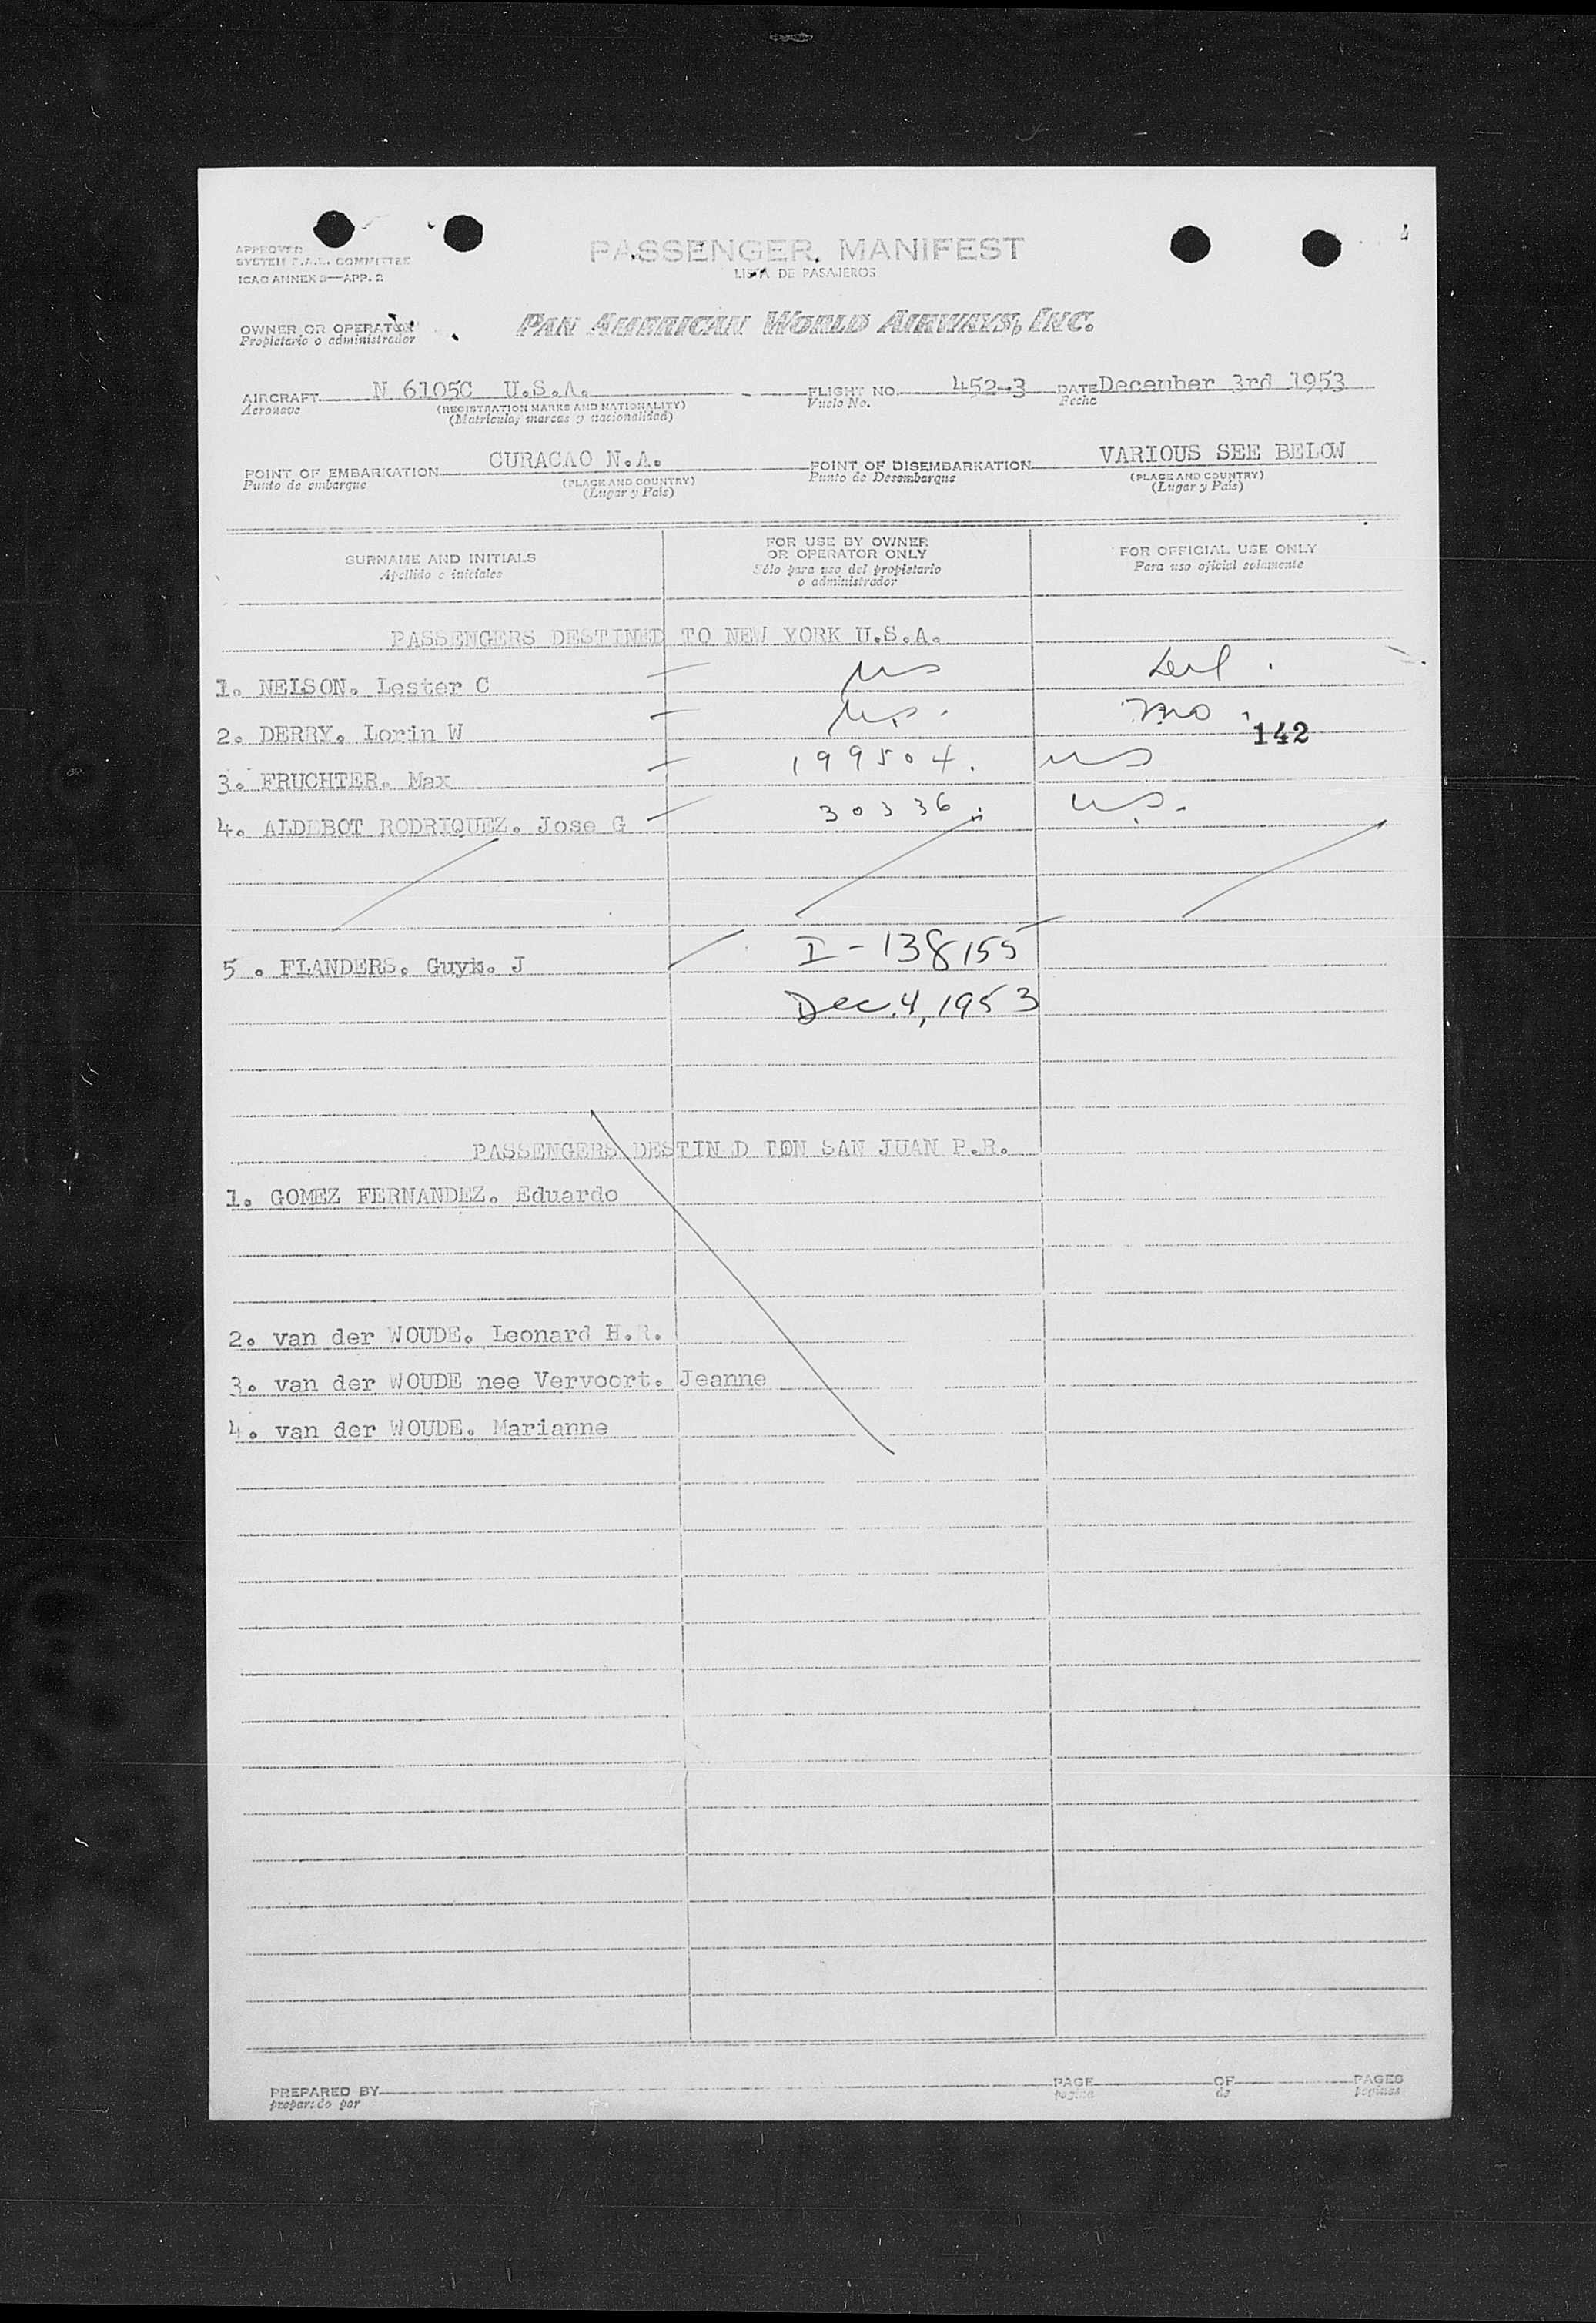 APPROVED
SYSTEM F.A.L. COMMITTEE
ICAO ANNEX 9—APP. 2
PASSENGER MANIFEST
LISTA DE PASAJEROS
OWNER OR OPERATOR
Propietario o administrador
PAN AMERICAN WORLD AIRWAYS, INC.
AIRCRAFT N 6105C U.S.A. FLIGHT NO. 452-3 DATE December 3rd 1953
Aeronave (REGISTRATION MARKS AND NATIONALITY) Vuelo No. Fecha
(Matricula, marcas y nacionalidad)
POINT OF EMBARKATION CURACAO N.A. POINT OF DISEMBARKATION VARIOUS SEE BELOW
Punto de embarque (PLACE AND COUNTRY) Punto de Desembarque (PLACE AND COUNTRY)
(Lugar y Pais) (Lugar y Pais)
SURNAME AND INITIALS
Apellido e iniciales
FOR USE BY OWNER
OR OPERATOR ONLY
Sólo para uso del propietario
o administrador
FOR OFFICIAL USE ONLY
Para uso oficial solamente
PASSENGERS DESTINED TO NEW YORK U.S.A.
1. NELSON. Lester C us
2. DERRY. Lorin W u.s. mo.
142
3. FRUCHTER. Max 199504. us
4. ALDEBOT RODRIQUEZ. Jose G 30336. u.s.
5 . FLANDERS. Guyk. J I-138155
Dec. 4, 1953
PASSENGERS DESTIN D TON SAN JUAN P.R.
1. GOMEZ FERNANDEZ. Eduardo
2. van der WOUDE. Leonard H.R.
3. van der WOUDE nee Vervoort. Jeanne
4. van der WOUDE. Marianne
PREPARED BY PAGE OF PAGES
preparado por pagina de paginas